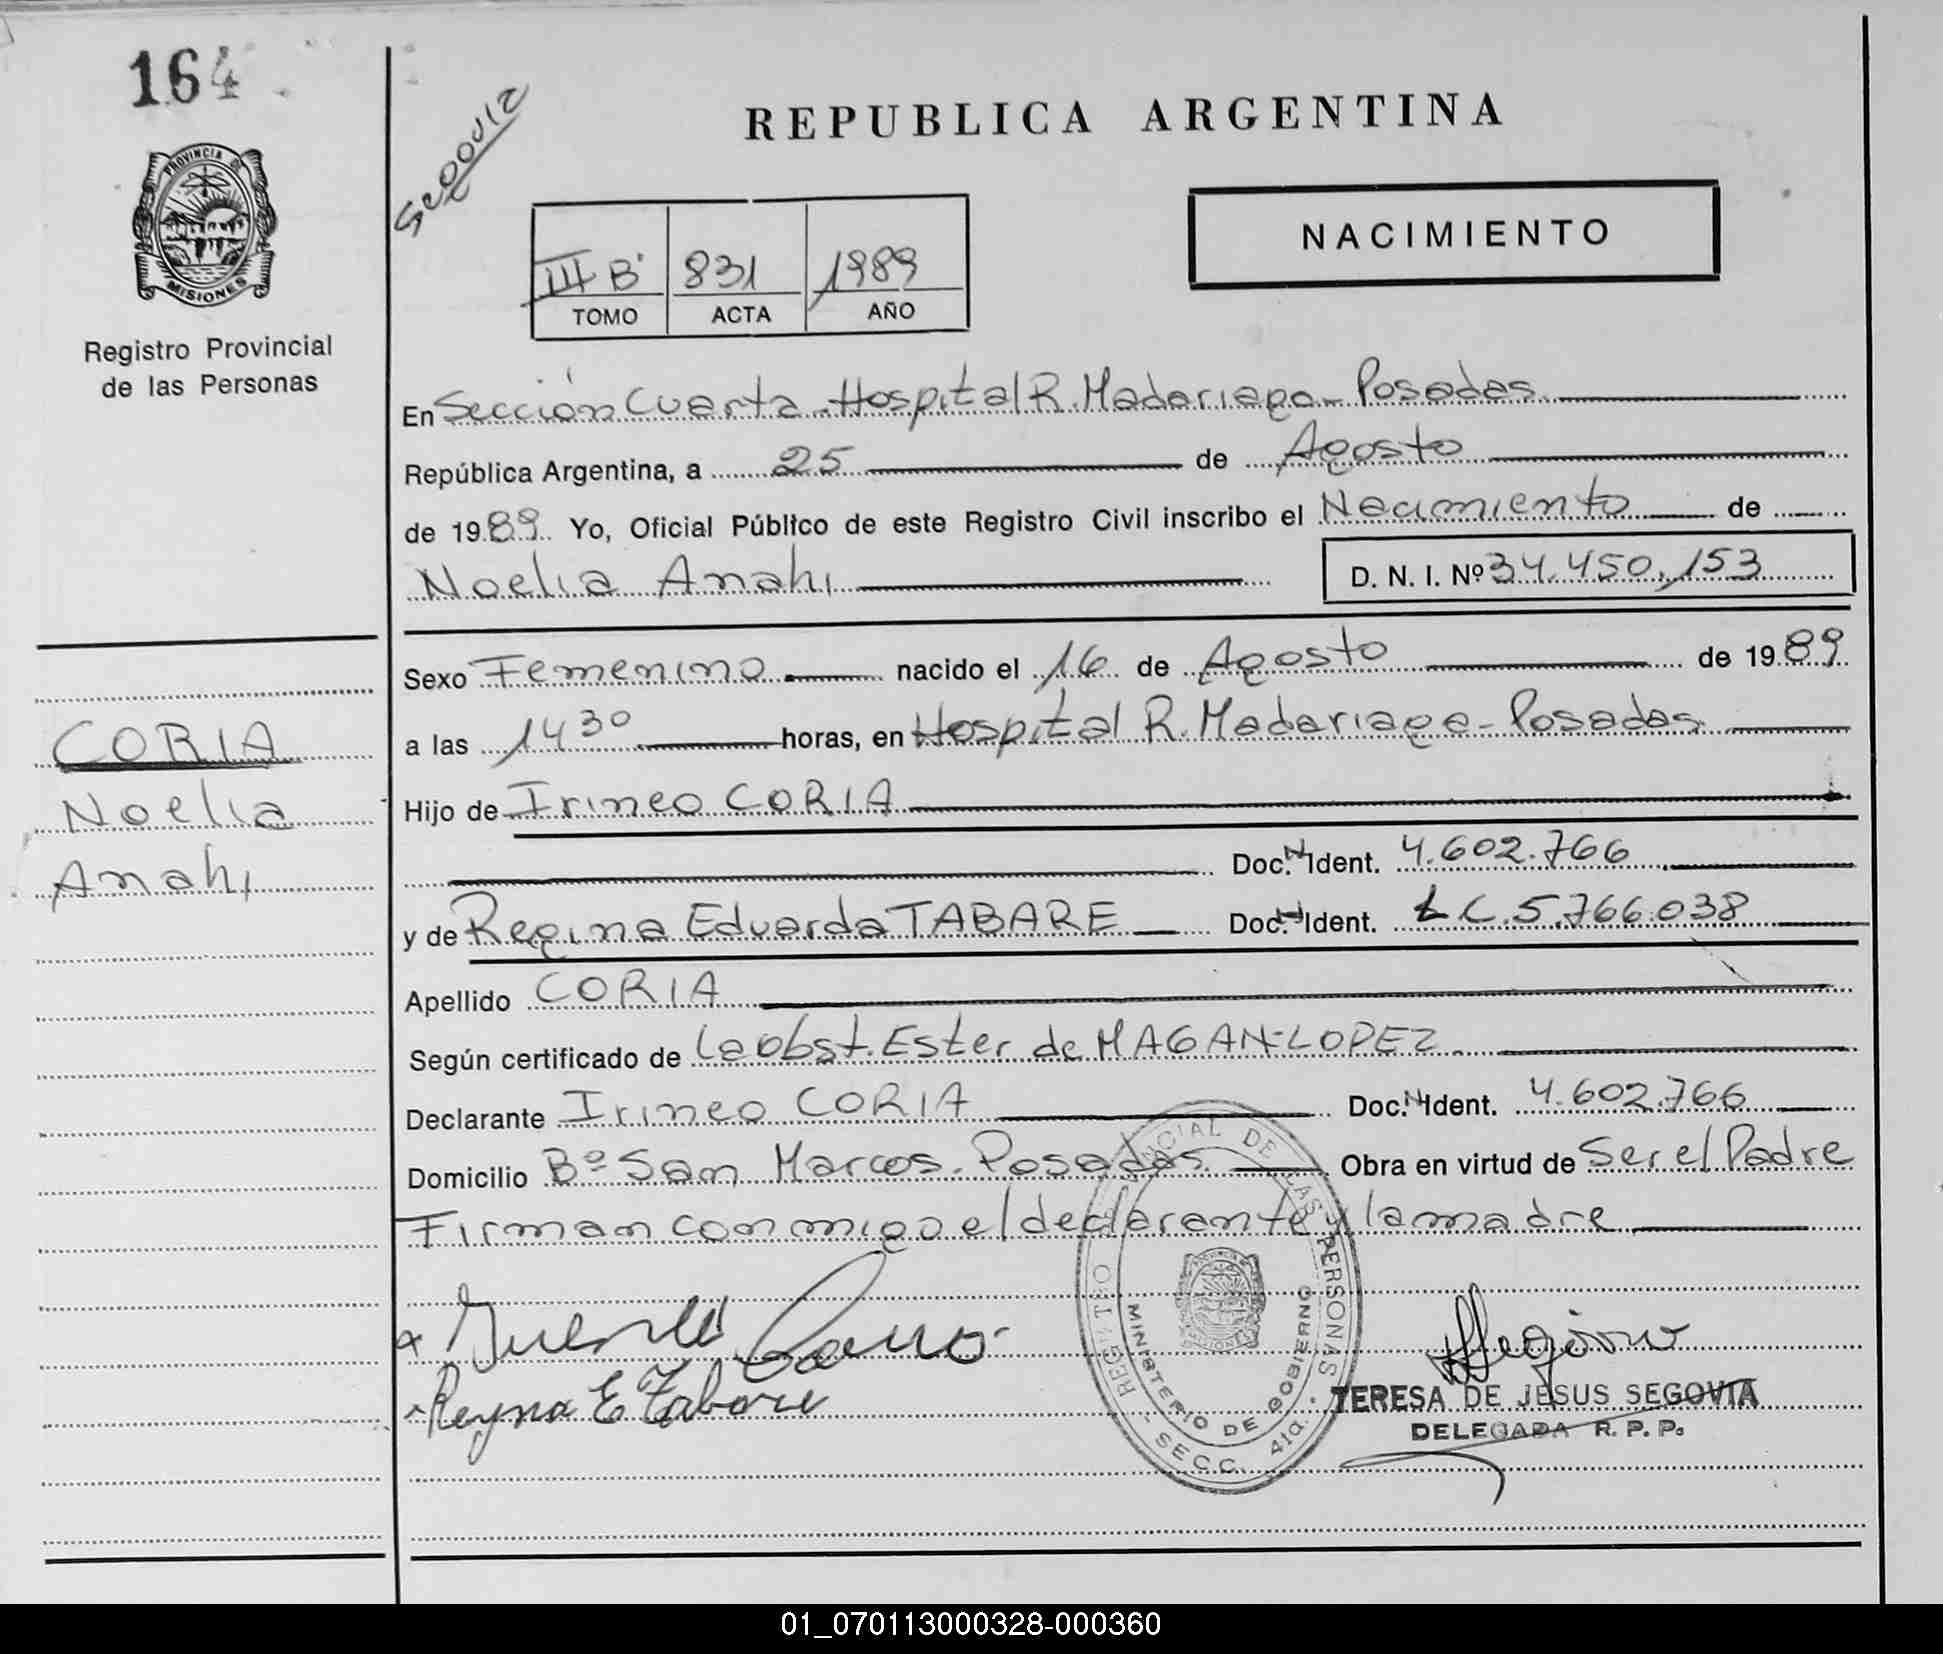 164
Segovia
REPUBLICA ARGENTINA
PROVINCIA DE
MISIONES
NACIMIENTO
III B' 831 1989
TOMO ACTA AÑO
Registro Provincial
de las Personas
En Sección Cuarta. Hospital R. Madariaga - Posadas.
República Argentina, a 25 de Agosto
de 1989. Yo, Oficial Público de este Registro Civil inscribo el Nacimiento de
Noelia Anahi D. N. I. Nº 34.450.153
Sexo Femenino nacido el 16 de Agosto de 1989
a las 14 30 horas, en Hospital R. Madariaga - Posadas.
CORIA
Noelia
Anahi
Hijo de Irineo CORIA
Doc. Ident. 4.602.766
y de Regina Eduarda TABARE Doc. Ident. L C. 5.766.038
Apellido CORIA
Según certificado de la obst. Ester de MAGAN-LOPEZ
Declarante Irineo CORIA Doc. Ident. 4.602.766
Domicilio Bº San Marcos. Posadas Obra en virtud de Ser el Padre
Firman conmigo el declarante y la madre
Reyna E Tabare
REGISTRO PROVINCIAL DE LAS PERSONAS
MINISTERIO DE GOBIERNO
- SECC. 4ta. -
TERESA DE JESUS SEGOVIA
DELEGADA R. P. P.
01_070113000328-000360